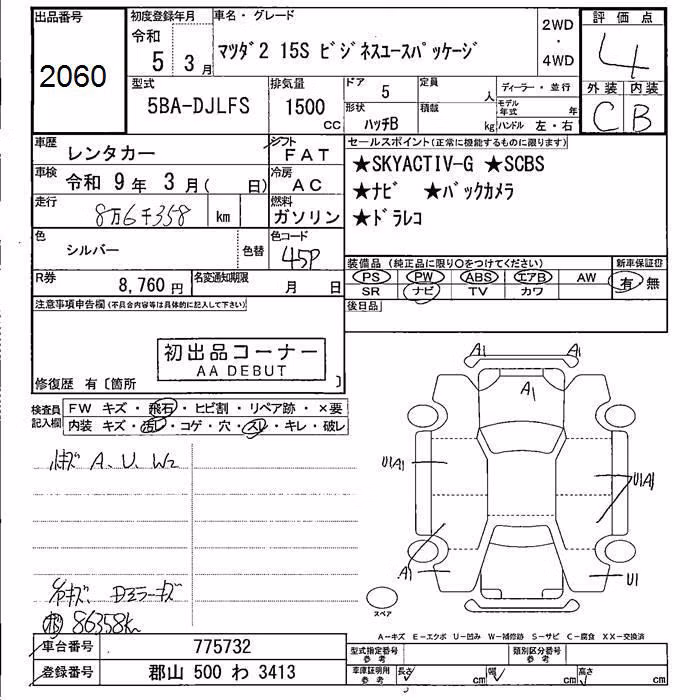 出品番号
2060
初度登録年月
令和
5 3月
車名・グレード
マツダ2 15S ビジネスユースパッケージ
2WD
・
4WD
評価点
4
外装 内装
C B
型式
5BA-DJLFS
排気量
1500
CC
ドア
5
形状
ハッチB
定員
人
積載
kg
ディーラー・並行
モデル年式 年
ハンドル 左・右
車歴
レンタカー
シフト
FAT
車検
令和 9年 3月( 日)
冷房
AC
走行
8万6千358 km
燃料
ガソリン
色
シルバー
色替
色コード
45P
R券
8,760円
名変通知期限
月 日
セールスポイント(正常に機能するものに限ります)
★SKYACTIV-G ★SCBS
★ナビ ★バックカメラ
★ドラレコ
装備品(純正品に限り○をつけてください)
PS PW ABS エアB AW
SR ナビ TV カワ
新車保証書
有・無
後日品
注意事項申告欄(不具合内容等は具体的に記入して下さい)
初出品コーナー
AA DEBUT
修復歴 有〔箇所 〕
検査員記入欄
FW キズ・飛石・ヒビ割・リペア跡・×要
内装 キズ・汚レ・コゲ・穴・スレ・キレ・破レ
A、U、W2
キズ、Dミラーキズ
86358km
A1 A1
A1
U1A1
U1A1
A1
U1
スペア
A－キズ E－エクボ U－凹み W－補修跡 S－サビ C－腐食 XX－交換済
車台番号
775732
登録番号
郡山 500 わ 3413
型式指定番号
参考
類別区分番号
参考
車庫証明用
参考
長さ cm 幅 cm 高さ cm